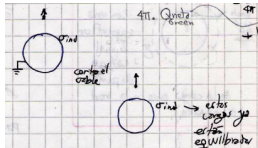 4π. Queda
Green
σind
cortar el
cable
σind → estas
cargas ya
están
equilibradas